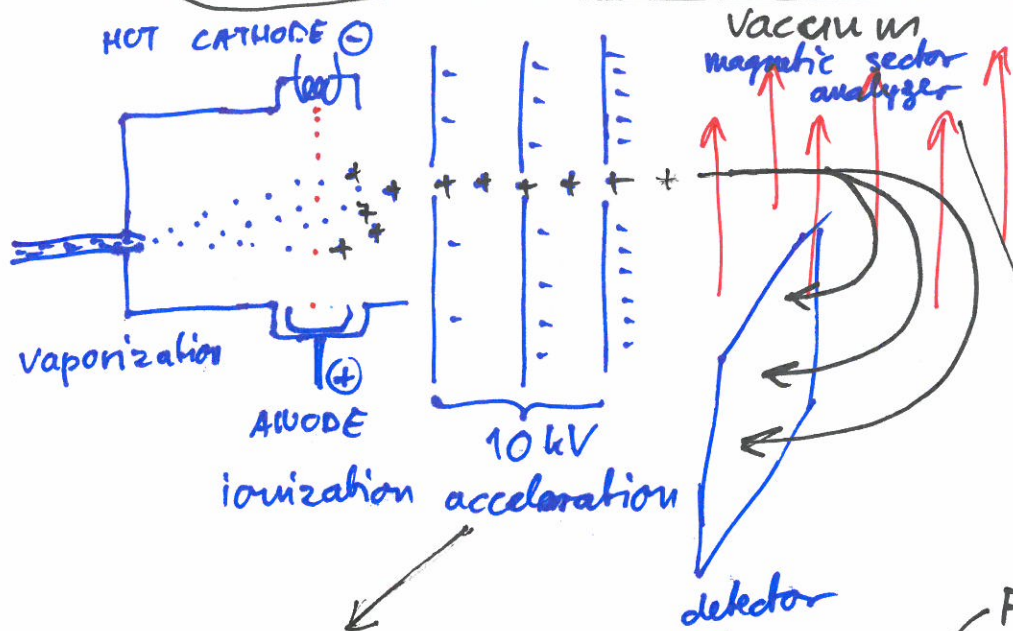 HOT CATHODE ⊖
vacuum
magnetic sector
analyzer
vaporization
⊕
ANODE
10 kV
ionization acceleration
detector